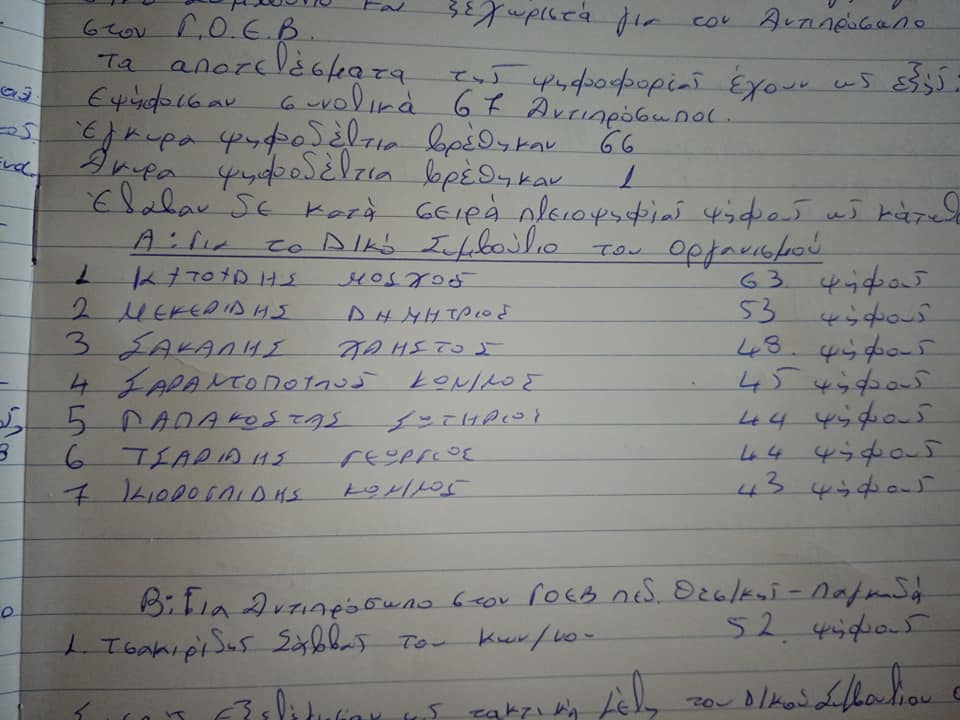 και ξεχωριστά για τον Αντιπρόσωπο
στον Γ.Ο.Ε.Β.
Τα αποτελέσματα της ψηφοφορίας έχουν ως εξής:
Εψήφισαν συνολικά 67 Αντιπρόσωποι.
Έγκυρα ψηφοδέλτια βρέθηκαν 66
Άκυρα ψηφοδέλτια βρέθηκαν 1
Έλαβαν δε κατά σειρά πλειοψηφίας ψήφους ως κάτωθ
Α: Για το Δ/κό Συμβούλιο του Οργανισμού
1 ΜΟΣΧΟΣ 63 ψήφους
2 ΜΕΚΕΡΙΔΗΣ ΔΗΜΗΤΡΙΟΣ 53 ψήφους
3 ΣΑΚΑΛΗΣ ΧΡΗΣΤΟΣ 48. ψήφους
4 ΣΑΡΑΝΤΟΠΟΥΛΟΣ ΚΩΝ/ΝΟΣ 45 ψήφους
5 ΠΑΠΑΚΩΣΤΑΣ ΣΩΤΗΡΙΟΣ 44 ψήφους
6 ΤΣΑΡΙΔΗΣ ΓΕΩΡΓΙΟΣ 44 ψήφους
7 ΚΙΟΡΟΓΛΙΔΗΣ ΚΩΝ/ΝΟΣ 43 ψήφους
Β: Για Αντιπρόσωπο στον ΓΟΕΒ πεδ. Θεσ/κης - Λαγκαδά
1. Τσακιρίδης Σάββας του Κων/νου 52. ψήφους
ως τακτικά μέλη του Δ/κού Συμβουλίου